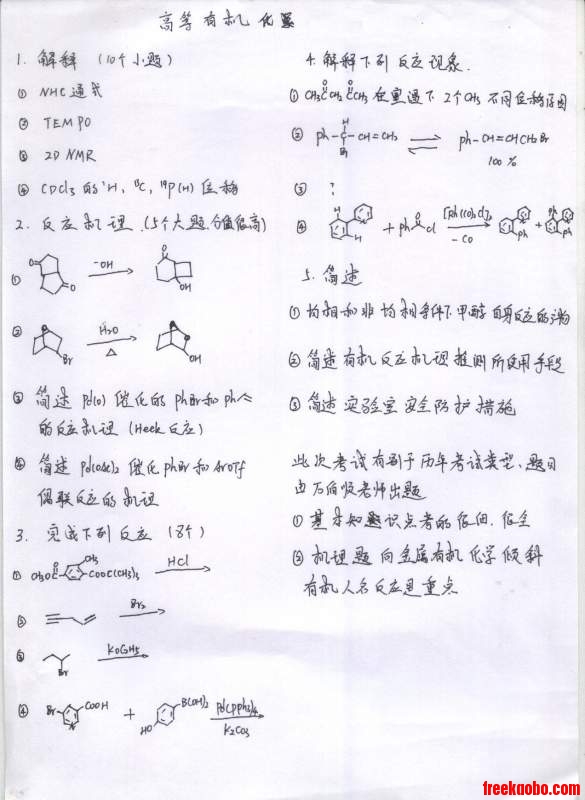 高等有机化学
1. 解释 (10个小题)
① NHC 通式
② TEMPO
③ 2D NMR
④ CDCl3 的 ¹H, ¹³C, ¹⁹P(H) 位移
2. 反应机理 (5个大题, 分值很高)
① O O ⁻OH O OH
② Br H2O △ O OH
③ 简述 Pd(0) 催化的 phBr 和 ph
的反应机理 (Heck 反应)
④ 简述 Pd(OAc)2 催化 phBr 和 ArOTf
偶联反应的机理
3. 完成下列反应 (8个)
① CH3OC O CH3 COOC(CH3)3 HCl
② Br2
③ Br KOC2H5
④ Br COOH N + HO B(OH)2 Pd(pph3)4 K2CO3
4. 解释下列反应现象
① CH3CCH2CCH3 O O 在室温下 2个CH3 不同位移原因
② ph-C-CH=CH2 H Br ph-CH=CHCH2Br
100%
③ ?
④ H N H + ph O Cl [Rh(CO)2Cl]2 -CO N ph + ph N ph
5. 简述
① 均相和非均相条件下, 甲醇自身反应的
② 简述有机反应机理推测所使用手段
③ 简述实验室安全防护措施
此次考试有别于历年考试类型、题目
由万伯顺老师出题
① 基本知识点考的很细、很全
② 机理题向金属有机化学倾斜
有机人名反应是重点
freekaobo.com